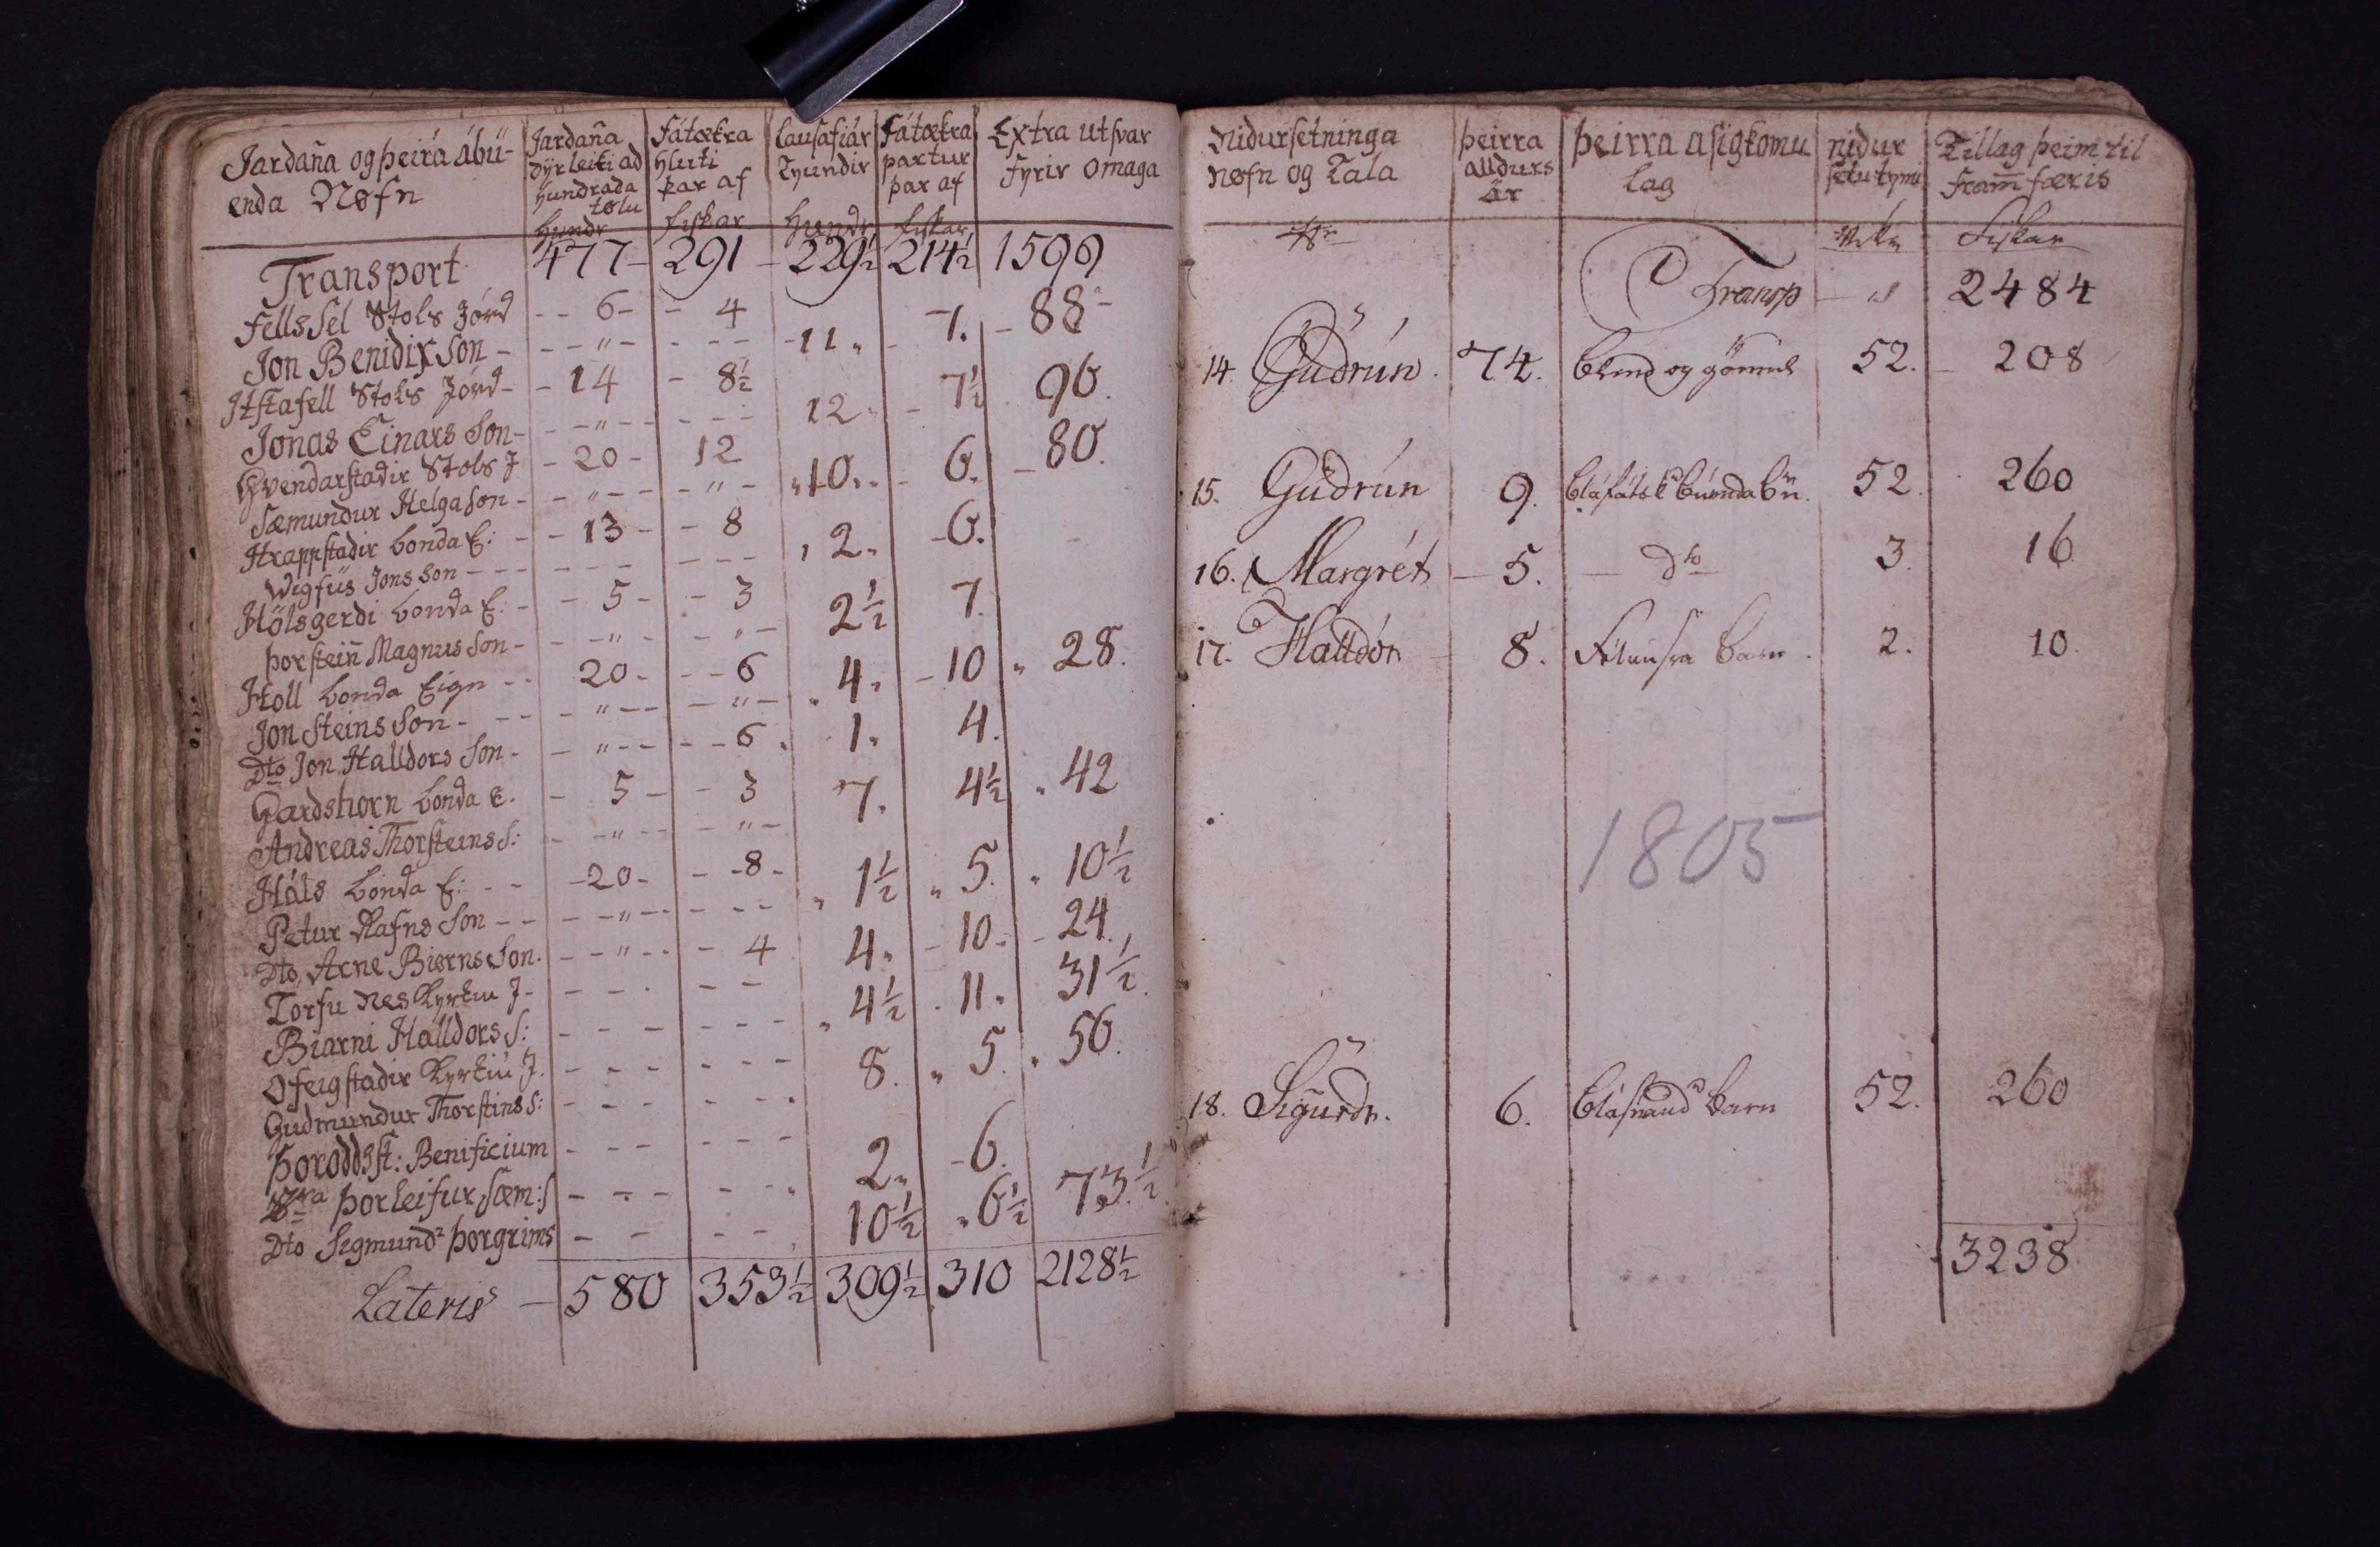 Jardaña og þeirá ábú-
enda Nøfn
Jardaña
dyrleiki ad
hundrada
tølu
Hundr
Fátækra
hluti
þar af
Fiskar
lausafiár
Tyundir
Hundr
Fátækra
partur
þar af
Fiskar
Extra utsvar
fyrir omaga
Transport 477 - 291 - 229½ 214½ 1599
Fells Sel Stols Jórd - - 6 - - 4
Jon Benidixson - - - " - - - - - 11. - 7. - 88 -
Itstafell Stols Jórd - - 14 - 8½
Jonas Einars Son - - - " - - - - - 12. - 7½ 96.
Gvendarstadir Stols J - 20 - 12
Sæmundur Helgason - - " - - - " - " 10. - 6. - 80.
Hrappstadir bonda E: - - 13 - - 8
Wigfús Jons Son - - - - - - - - - , 2. - 6.
Hólsgerdi bonda E: - - 5 - - 3
Þorsteiñ Magnus Son - - - " - - " - 2½ 7.
Holl bonda Eign - - 20 - - - 6
Jon Steins Son - - - - " - - - " - " 4. - 10 " 28.
Dto Jon Halldors Son - - " - - - - 6. 1. 4.
Gardshorn bonda E. - 5 - - 3
Andreas Thorsteins S: - - " - - - " - 7. 4½ " 42
Háls bonda E: - - - 20 - - - 8 -
Petur Rafns Son - - - - " - - - - - " 1½ " 5. " 10½
Dto, Arne Biørns Son. - - " - - - 4 4. - 10. - 24.
Torfu nes Kyrkiu J - - - - - -
Biarni Halldors S: - - - - - - " 4½ . 11. 31½.
Ofeigstadir Kyrkiu J. - - - - - -
Gudmundur Thorstins S: - - - - - - 8. " 5. " 56.
Þoroddsst: Benificium - - - - - -
Sra Þorleifur Sæm: S - - - - - - 2. - 6.
Dto Sigmundr Þorgrims - - - - 10½ " 6½ 73½
Lateris - 580 353½ 309½ 310 2128½
Nidursetninga
Nøfn og Tala
þeirra
alldurs
ár
þeirra asigkomu
lag
nidur
setu tymi
Vikr
Tillag þeim til
fram̄færis
Fiskar
Transp - " 2484
14. Gudrún. 74. blind og gømul 52. 208
15. Gudrún 9. bláfátækr búenda bñ. 52. 260
16. Margrét - 5. - dto 3. 16
17. Halldór 8. barn. 2. 10.
1805
18. Sigurdr. 6. blásnaud barn 52. 260
3238